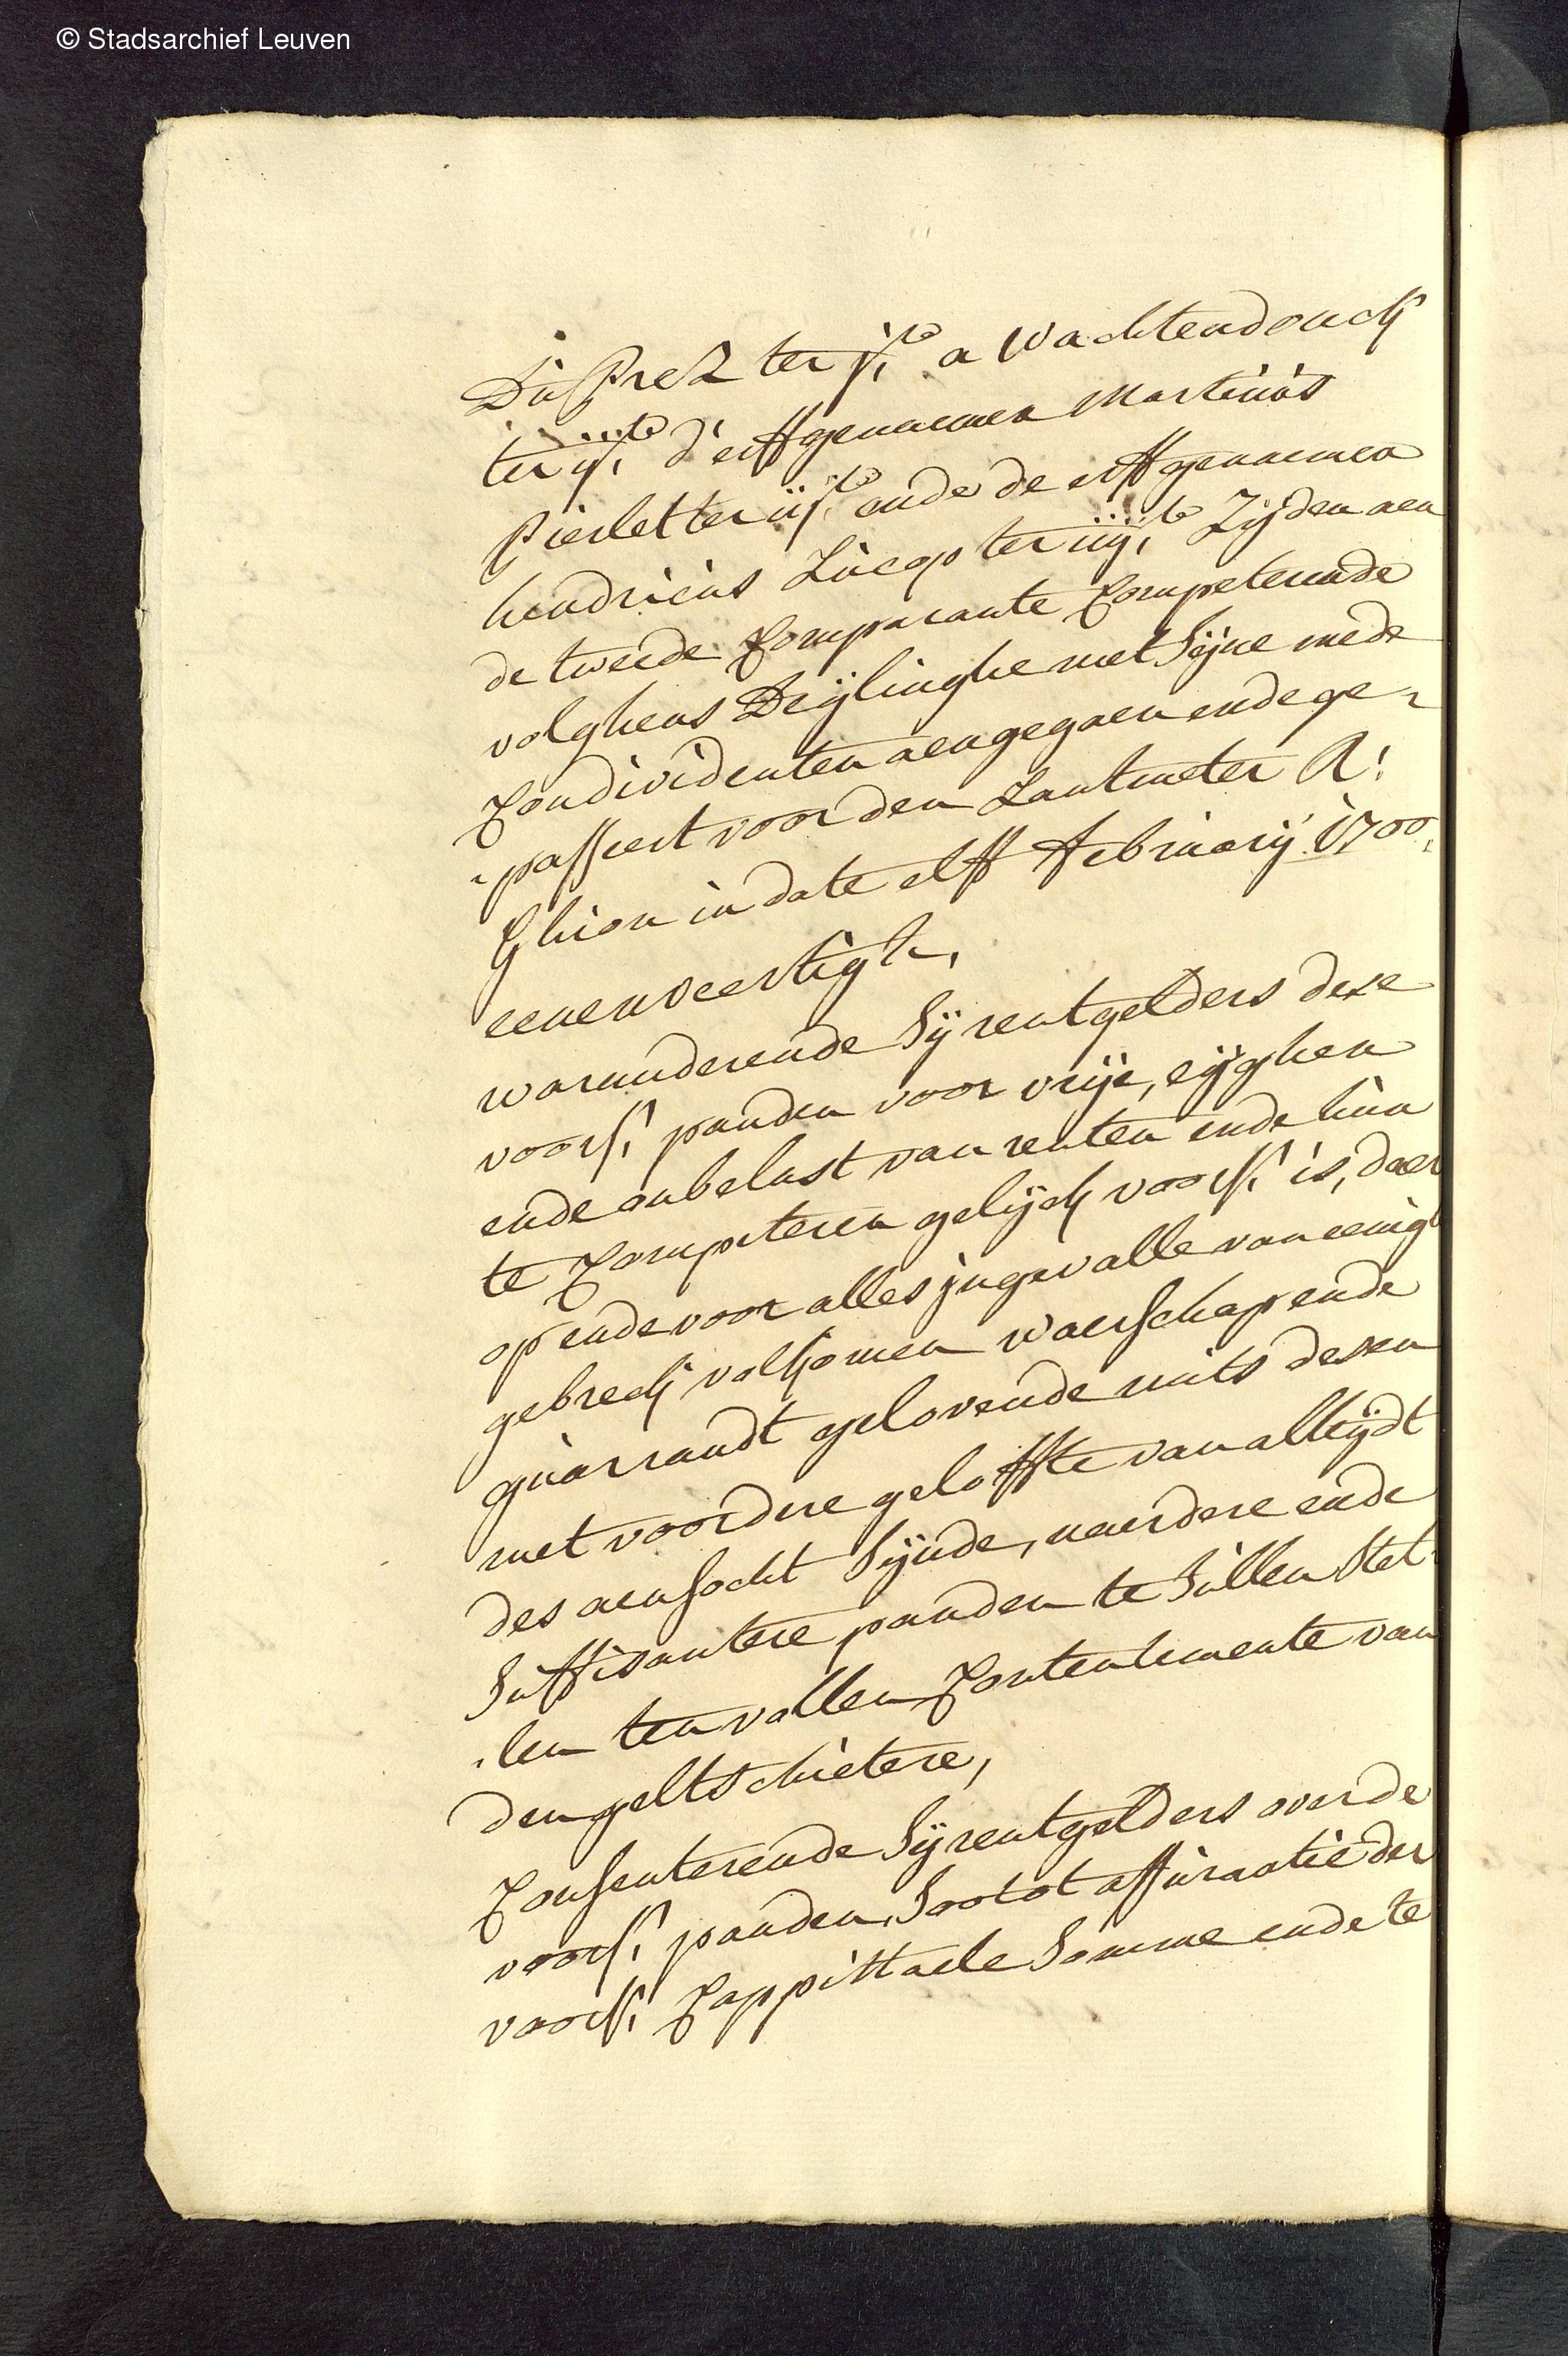 © Stadsarchief Leuven
Du Prez ter j.e a Wachtendonck
ter ij.e d'erffgenaemen Martinus
Pierlet ter iij.e ende de erffgenaemen
hendricus Luegs ter iiij.e Zijden aen
de tweede Comparante Competerende
volghens Deijlinghe met sijne mede
Condividenten aengegaen ende ge-
-passeert voor den Lantmeter R:
Ghion in date elff februarij 1700
eenenveertigh,
waranderende sij rentgelders dese
voors. panden voor vrije, eijghen
ende onbelast van renten ende hun
te Competeren gelijck voors. is, daer
op ende voor alles ingevalle van eenigh
gebreck volkomen waerschap ende
guarrandt gelovende mits desen
met voordere geloffte van altijdt
des aensocht sijnde, naerdere ende
suffisantere panden te sullen stel-
-len ten vollen Contentemente van
den geltschietere,
Consenterende sij rentgelders over de
voors. panden, soo tot assurantie der
voors. Cappittaele somme ende te